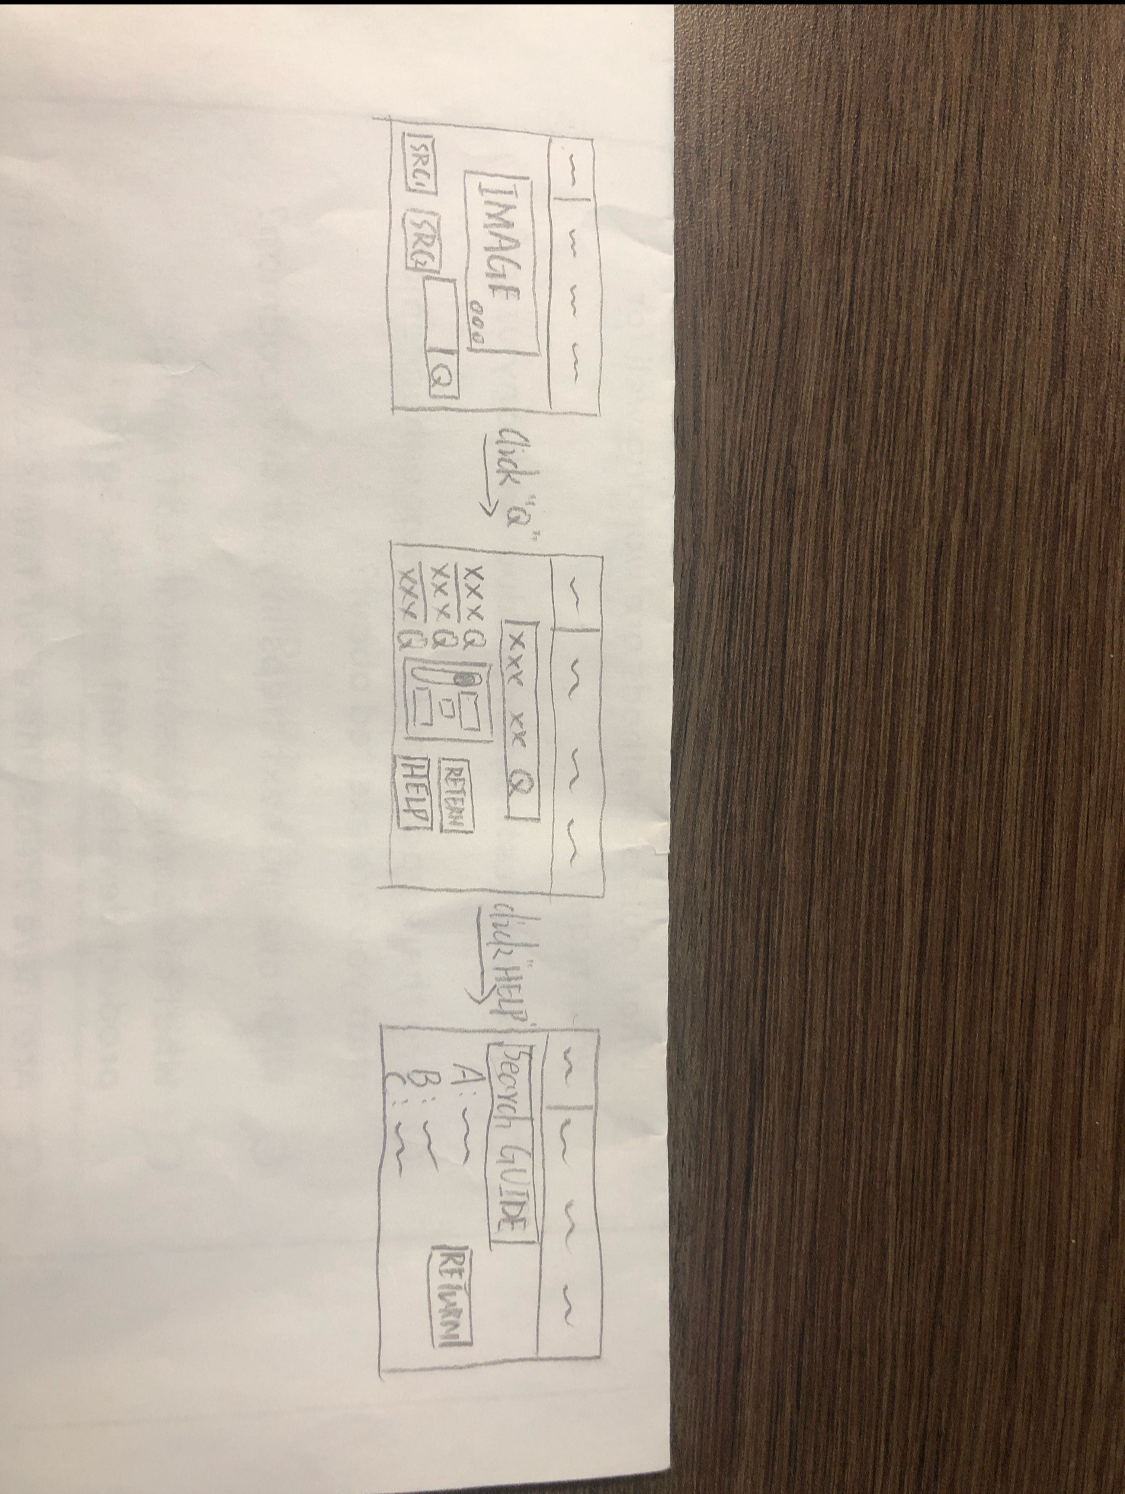 IMAGE
SRC1 SRC2
Q
click "Q"
xxx xx Q
xxx Q
xxx Q
xxx Q
RETERN
HELP
click "HELP"
Search GUIDE
A:
B:
C:
RETURN